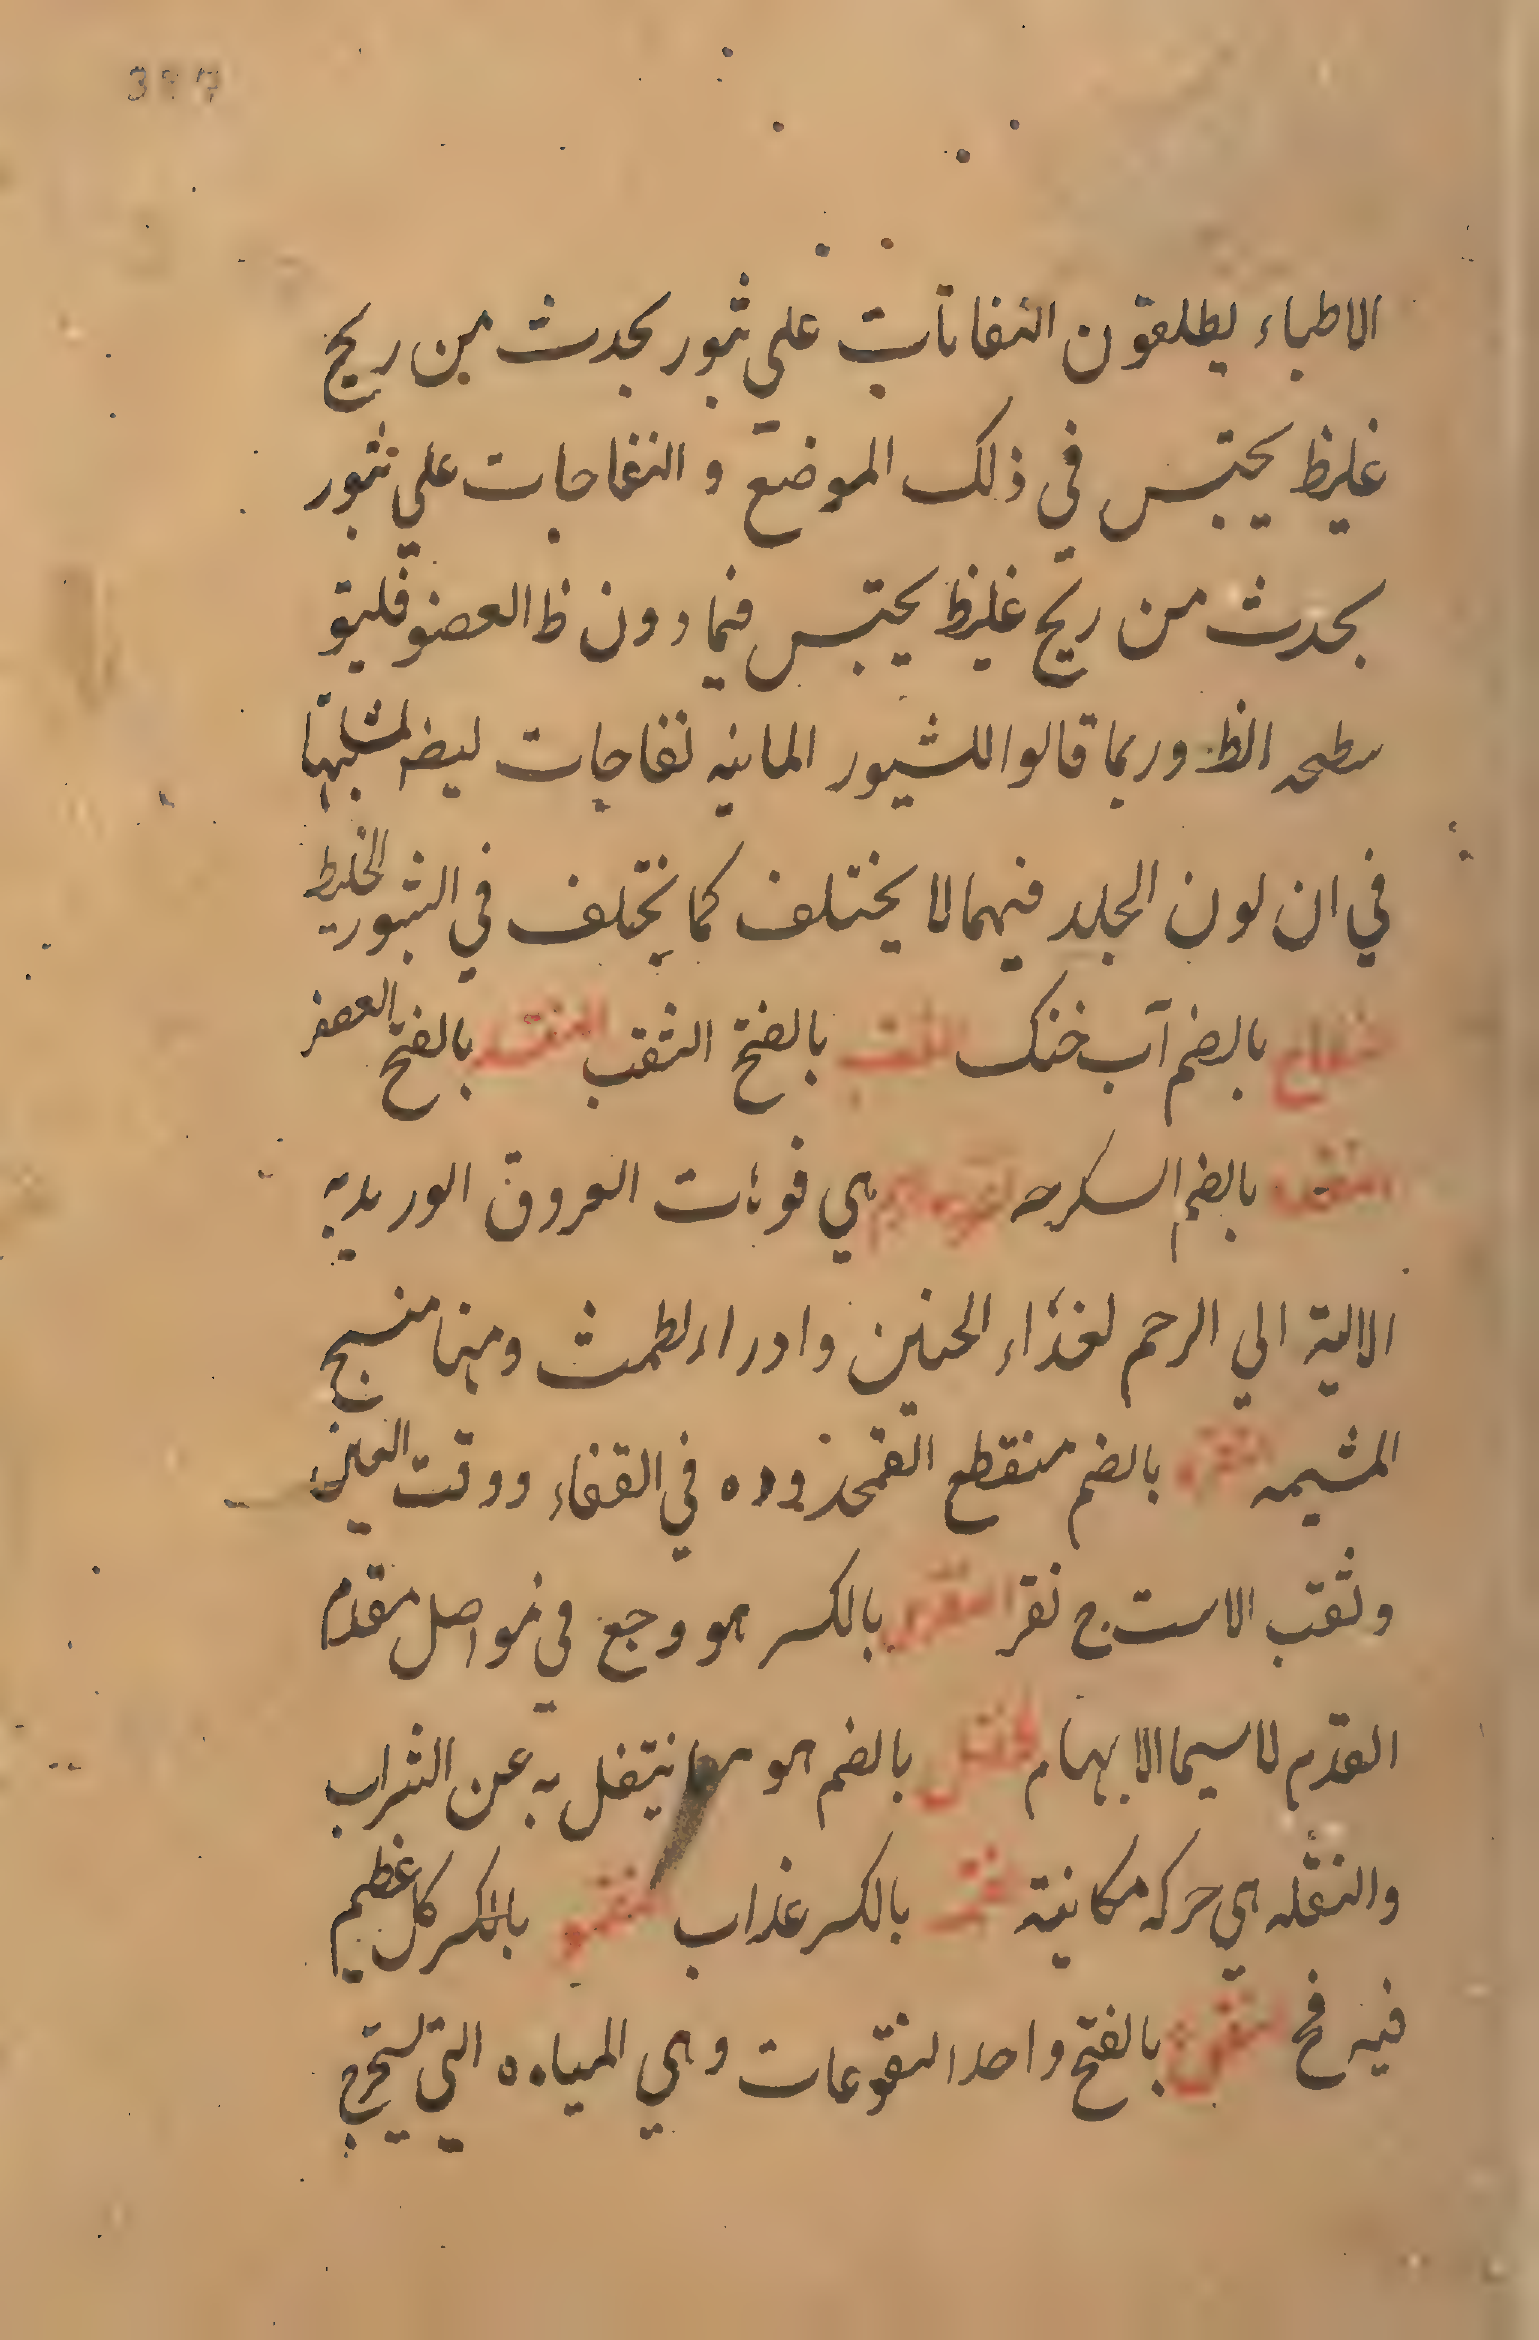 الاطباء يطلقون النفاتات علي بثور يحدث من ريح
غليظ يحتبس في ذلك الموضع و النفاجات علي بثور
يحدث من ريح غليظ يحتبس فيما دون ظ العضو فليتو
سطحه الظ وربما قالوا للبثور المائيه نفاجات ليضه لمشابهتها
في ان لون الجلد فيهما لا يختلف كما يختلف في البثور الخليط
بالضم آب خنك النقب بالفتح الثقب النقد بالفتح العصفر
بالضم السكرجه هي فوهات العروق الوريديه
الالية الي الرحم لغذاء الجنين وادراء لطمث ومنها منسج
المشيمه النقره بالضم منقطع القمحذوده في القفاء ووقت العين
وثقب الاست ج نقر النقرس بالكسر هو وجع في مواصل مقدم
القدم لا سيما الابهام النقل بالضم هو ما ينتقل به عن الشراب
والنقله هي حركه مكانية نقمه بالكسر عذاب النقو بالكسر كل عظيم
فيه مخ النقوع بالفتح واحد النقوعات وهي المياه التي تستخرج